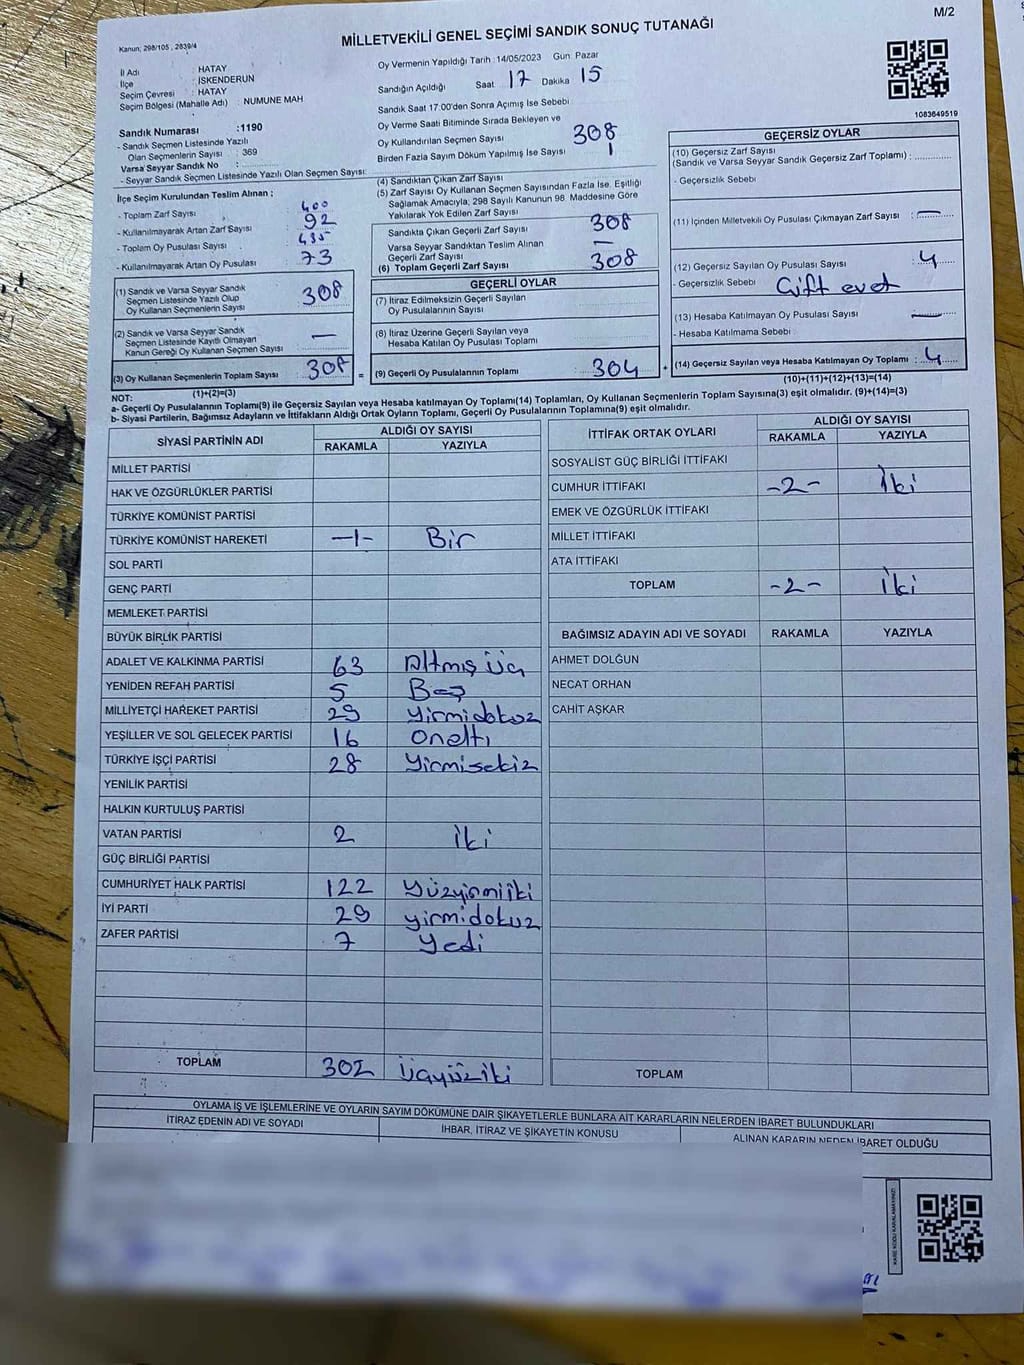 M/2
Kanun; 298/105 , 2839/4
MİLLETVEKİLİ GENEL SEÇİMİ SANDIK SONUÇ TUTANAĞI
İl Adı : HATAY
İlçe : İSKENDERUN
Seçim Çevresi : HATAY
Seçim Bölgesi (Mahalle Adı) : NUMUNE MAH
Sandık Numarası :1190
- Sandık Seçmen Listesinde Yazılı
Olan Seçmenlerin Sayısı : 369
Varsa Seyyar Sandık No :
- Seyyar Sandık Seçmen Listesinde Yazılı Olan Seçmen Sayısı:
İlçe Seçim Kurulundan Teslim Alınan ;
- Toplam Zarf Sayısı 400
- Kullanılmayarak Artan Zarf Sayısı 92
- Toplam Oy Pusulası Sayısı
- Kullanılmayarak Artan Oy Pusulası 73
(1) Sandık ve Varsa Seyyar Sandık
Seçmen Listesinde Yazılı Olup
Oy Kullanan Seçmenlerin Sayısı 308
(2) Sandık ve Varsa Seyyar Sandık
Seçmen Listesinde Kayıtlı Olmayan
Kanun Gereği Oy Kullanan Seçmen Sayısı —
(3) Oy Kullanan Seçmenlerin Toplam Sayısı 308
(1)+(2)=(3)
Oy Vermenin Yapıldığı Tarih :14/05/2023 Gün: Pazar
Sandığın Açıldığı Saat 17 Dakika 15
Sandık Saat 17:00'den Sonra Açımış İse Sebebi
Oy Verme Saati Bitiminde Sırada Bekleyen ve
Oy Kullandırılan Seçmen Sayısı 308
Birden Fazla Sayım Döküm Yapılmış İse Sayısı 1
(4) Sandıktan Çıkan Zarf Sayısı
(5) Zarf Sayısı Oy Kullanan Seçmen Sayısından Fazla İse, Eşitliği
Sağlamak Amacıyla; 298 Sayılı Kanunun 98. Maddesine Göre
Yakılarak Yok Edilen Zarf Sayısı
Sandıkta Çıkan Geçerli Zarf Sayısı 308
Varsa Seyyar Sandıktan Teslim Alınan
Geçerli Zarf Sayısı —
(6) Toplam Geçerli Zarf Sayısı 308
GEÇERLİ OYLAR
(7) İtiraz Edilmeksizin Geçerli Sayılan
Oy Pusulalarının Sayısı
(8) İtiraz Üzerine Geçerli Sayılan veya
Hesaba Katılan Oy Pusulası Toplamı
= (9) Geçerli Oy Pusulalarının Toplamı 304 +
1083649519
GEÇERSİZ OYLAR
(10) Geçersiz Zarf Sayısı
(Sandık ve Varsa Seyyar Sandık Geçersiz Zarf Toplamı) :
- Geçersizlik Sebebi
(11) İçinden Milletvekili Oy Pusulası Çıkmayan Zarf Sayısı : —
(12) Geçersiz Sayılan Oy Pusulası Sayısı : 4
- Geçersizlik Sebebi Çift evet
(13) Hesaba Katılmayan Oy Pusulası Sayısı : —
- Hesaba Katılmama Sebebi
(14) Geçersiz Sayılan veya Hesaba Katılmayan Oy Toplamı : 4
(10)+(11)+(12)+(13)=(14)
NOT:
a- Geçerli Oy Pusulalarının Toplamı(9) ile Geçersiz Sayılan veya Hesaba katılmayan Oy Toplamı(14) Toplamları, Oy Kullanan Seçmenlerin Toplam Sayısına(3) eşit olmalıdır. (9)+(14)=(3)
b- Siyasi Partilerin, Bağımsız Adayların ve İttifakların Aldığı Ortak Oyların Toplamı, Geçerli Oy Pusulalarının Toplamına(9) eşit olmalıdır.
SİYASİ PARTİNİN ADI ALDIĞI OY SAYISI
RAKAMLA YAZIYLA
MİLLET PARTİSİ
HAK VE ÖZGÜRLÜKLER PARTİSİ
TÜRKİYE KOMÜNİST PARTİSİ
TÜRKİYE KOMÜNİST HAREKETİ -1- Bir
SOL PARTİ
GENÇ PARTİ
MEMLEKET PARTİSİ
BÜYÜK BİRLİK PARTİSİ
ADALET VE KALKINMA PARTİSİ 63 Altmış üç
YENİDEN REFAH PARTİSİ 5 Beş
MİLLİYETÇİ HAREKET PARTİSİ 29 Yirmidokuz
YEŞİLLER VE SOL GELECEK PARTİSİ 16 Onaltı
TÜRKİYE İŞÇİ PARTİSİ 28 Yirmisekiz
YENİLİK PARTİSİ
HALKIN KURTULUŞ PARTİSİ
VATAN PARTİSİ 2 iki
GÜÇ BİRLİĞİ PARTİSİ
CUMHURİYET HALK PARTİSİ 122 Yüzyirmiiki
İYİ PARTİ 29 yirmidokuz
ZAFER PARTİSİ 7 Yedi
TOPLAM 302 üçyüziki
İTTİFAK ORTAK OYLARI ALDIĞI OY SAYISI
RAKAMLA YAZIYLA
SOSYALİST GÜÇ BİRLİĞİ İTTİFAKI
CUMHUR İTTİFAKI -2- İki
EMEK VE ÖZGÜRLÜK İTTİFAKI
MİLLET İTTİFAKI
ATA İTTİFAKI
TOPLAM -2- İki
BAĞIMSIZ ADAYIN ADI VE SOYADI RAKAMLA YAZIYLA
AHMET DOLĞUN
NECAT ORHAN
CAHİT AŞKAR
TOPLAM
OYLAMA İŞ VE İŞLEMLERİNE VE OYLARIN SAYIM DÖKÜMÜNE DAİR ŞİKAYETLERLE BUNLARA AİT KARARLARIN NELERDEN İBARET BULUNDUKLARI
İTİRAZ EDENİN ADI VE SOYADI İHBAR, İTİRAZ VE ŞİKAYETİN KONUSU ALINAN KARARIN NEDEN İBARET OLDUĞU
KARE KODU KARALAMAYINIZ!